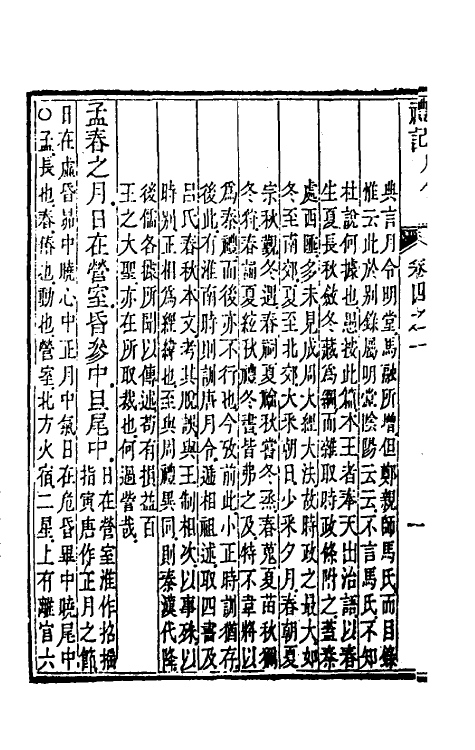 卷四之一
一
典言月令明堂馬融所增但鄭親師馬氏而目錄
惟云此於別錄屬明堂陰陽云云不言馬氏不知
杜說何據也愚按此篇本王者奉天出治語以春
生夏長秋斂冬藏爲綱而雜取時政條附之蓋秦
處西陲多未見成周大經大法故時政之最大如
冬至南郊夏至北郊大采朝日少采夕月春朝夏
宗秋覲冬遇春祠夏禴秋嘗冬烝春蒐夏苗秋獮
冬狩春誦夏絃秋禮冬書皆弗之及特不韋將以
爲秦禮而後亦不行也今攷前此小正時訓猶存
後此有淮南時則訓唐月令遞相祖述取四書及
呂氏春秋本文考其脫誤與王制相次以事殊以
時別正相爲經緯也至與周禮異同則秦漢代降
後儒各據所聞以傳述苟有損益百
王之大聖亦在所取裁也何過訾哉
孟春之月日在營室昏參中旦尾中
日在營室淮作招搖
指寅唐作正月之節
日在虛昏昴中曉心中正月中氣日在危昏畢中曉尾中
○孟長也春偆也動也營室北方火宿二星上有離宮六